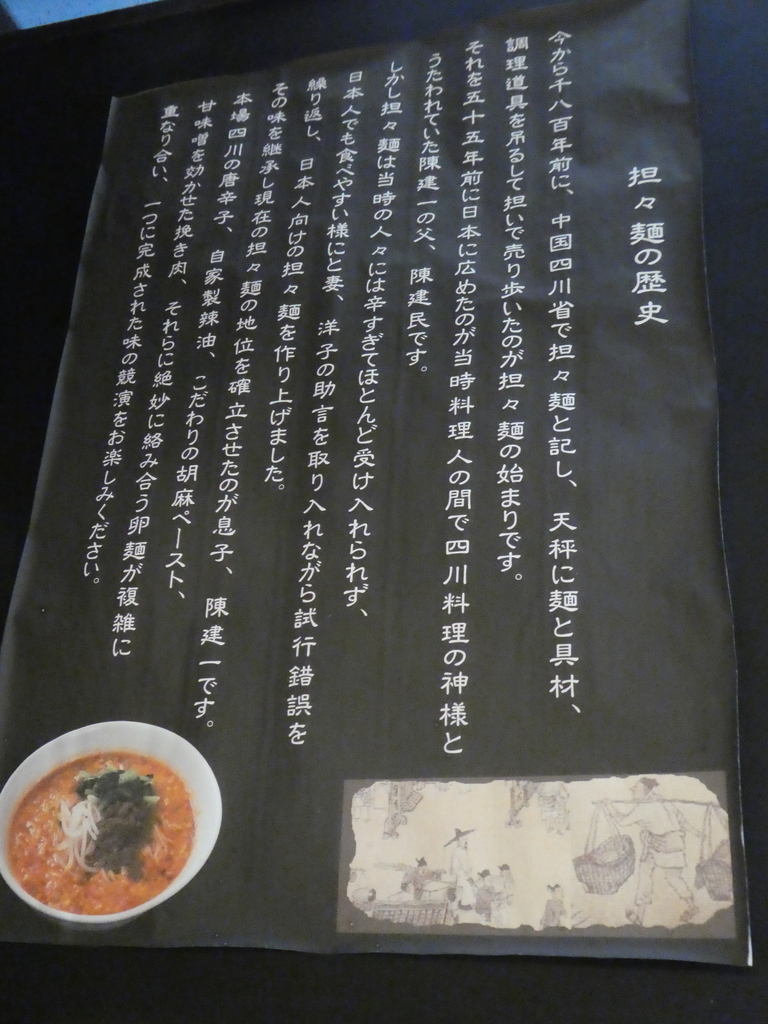 担々麺の歴史
今から千八百年前に、中国四川省で担々麺と記し、天秤に麺と具材、
調理道具を吊るして担いで売り歩いたのが担々麺の始まりです。
それを五十五年前に日本に広めたのが当時料理人の間で四川料理の神様と
うたわれていた陳建一の父、陳建民です。
しかし担々麺は当時の人々には辛すぎてほとんど受け入れられず、
日本人でも食べやすい様にと妻、洋子の助言を取り入れながら試行錯誤を
繰り返し、日本人向けの担々麺を作り上げました。
その味を継承し現在の担々麺の地位を確立させたのが息子、陳建一です。
本場四川の唐辛子、自家製辣油、こだわりの胡麻ペースト、
甘味噌を効かせた挽き肉、それらに絶妙に絡み合う卵麺が複雑に
重なり合い、一つに完成された味の競演をお楽しみください。